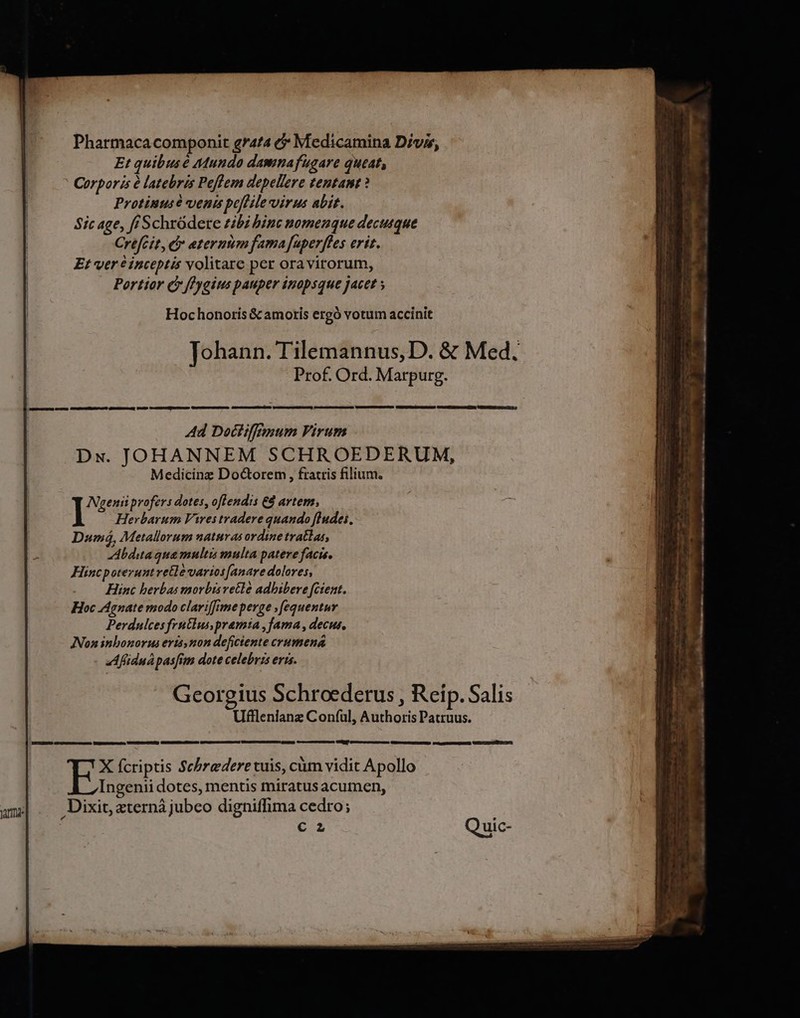 Pharmaca componit grata & Medicamina Divis,
Et quibus é Mundo damna fugare queat,
Corporis è latebris Pestem depellere tentant?
Protinus è venis pestile virus abit.
Sic age, sſ Schrödere tibi hinc nomenque decusque
Crescit, & æternùm fama superstes erit.
Et ver è inceptis volitare per ora virorum,
Portior & stygius pauper inopsque jacet;
Hoc honoris & amoris ergò votum accinit
Johann. Tilemannus, D. & Med.
Prof. Ord. Marpurg.
Ad Doctissimum Virum
Dn. JOHANNEM SCHROEDERUM,
Medicinæ Doctorem, fratris filium.
INgenii profers dotes, ostendis & artem,
Herbarum Vires tradere quando studes,
Dumq́, Metallorum naturas ordine tractas,
Abdita quæ multis multa patere facis.
Hinc poterunt rectè varios sanare dolores,
Hinc herbas morbis rectè adhibere scient.
Hoc Agnate modo clarissime perge, sequentur
Perdulces fructus, præmia, fama, decus.
Non inhonorus eris, non deficiente crumenâ
Assiduâ passim dote celebris eris.
Georgius Schrœderus, Reip. Salis
Ufflenianæ Consul, Authoris Patruus.
EX scriptis Schrœdere tuis, cùm vidit Apollo
Ingenii dotes, mentis miratus acumen,
Dixit, æternâ jubeo dignissima cedro;
C 2 Quic-